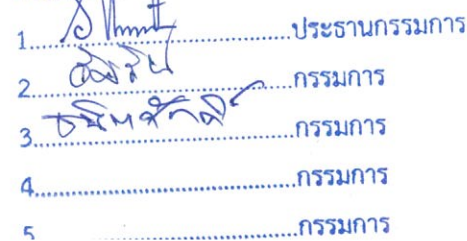 1..............................ประธานกรรมการ
2..............................กรรมการ
3. ธนิตศักดิ์ ..............................กรรมการ
4..............................กรรมการ
5..............................กรรมการ